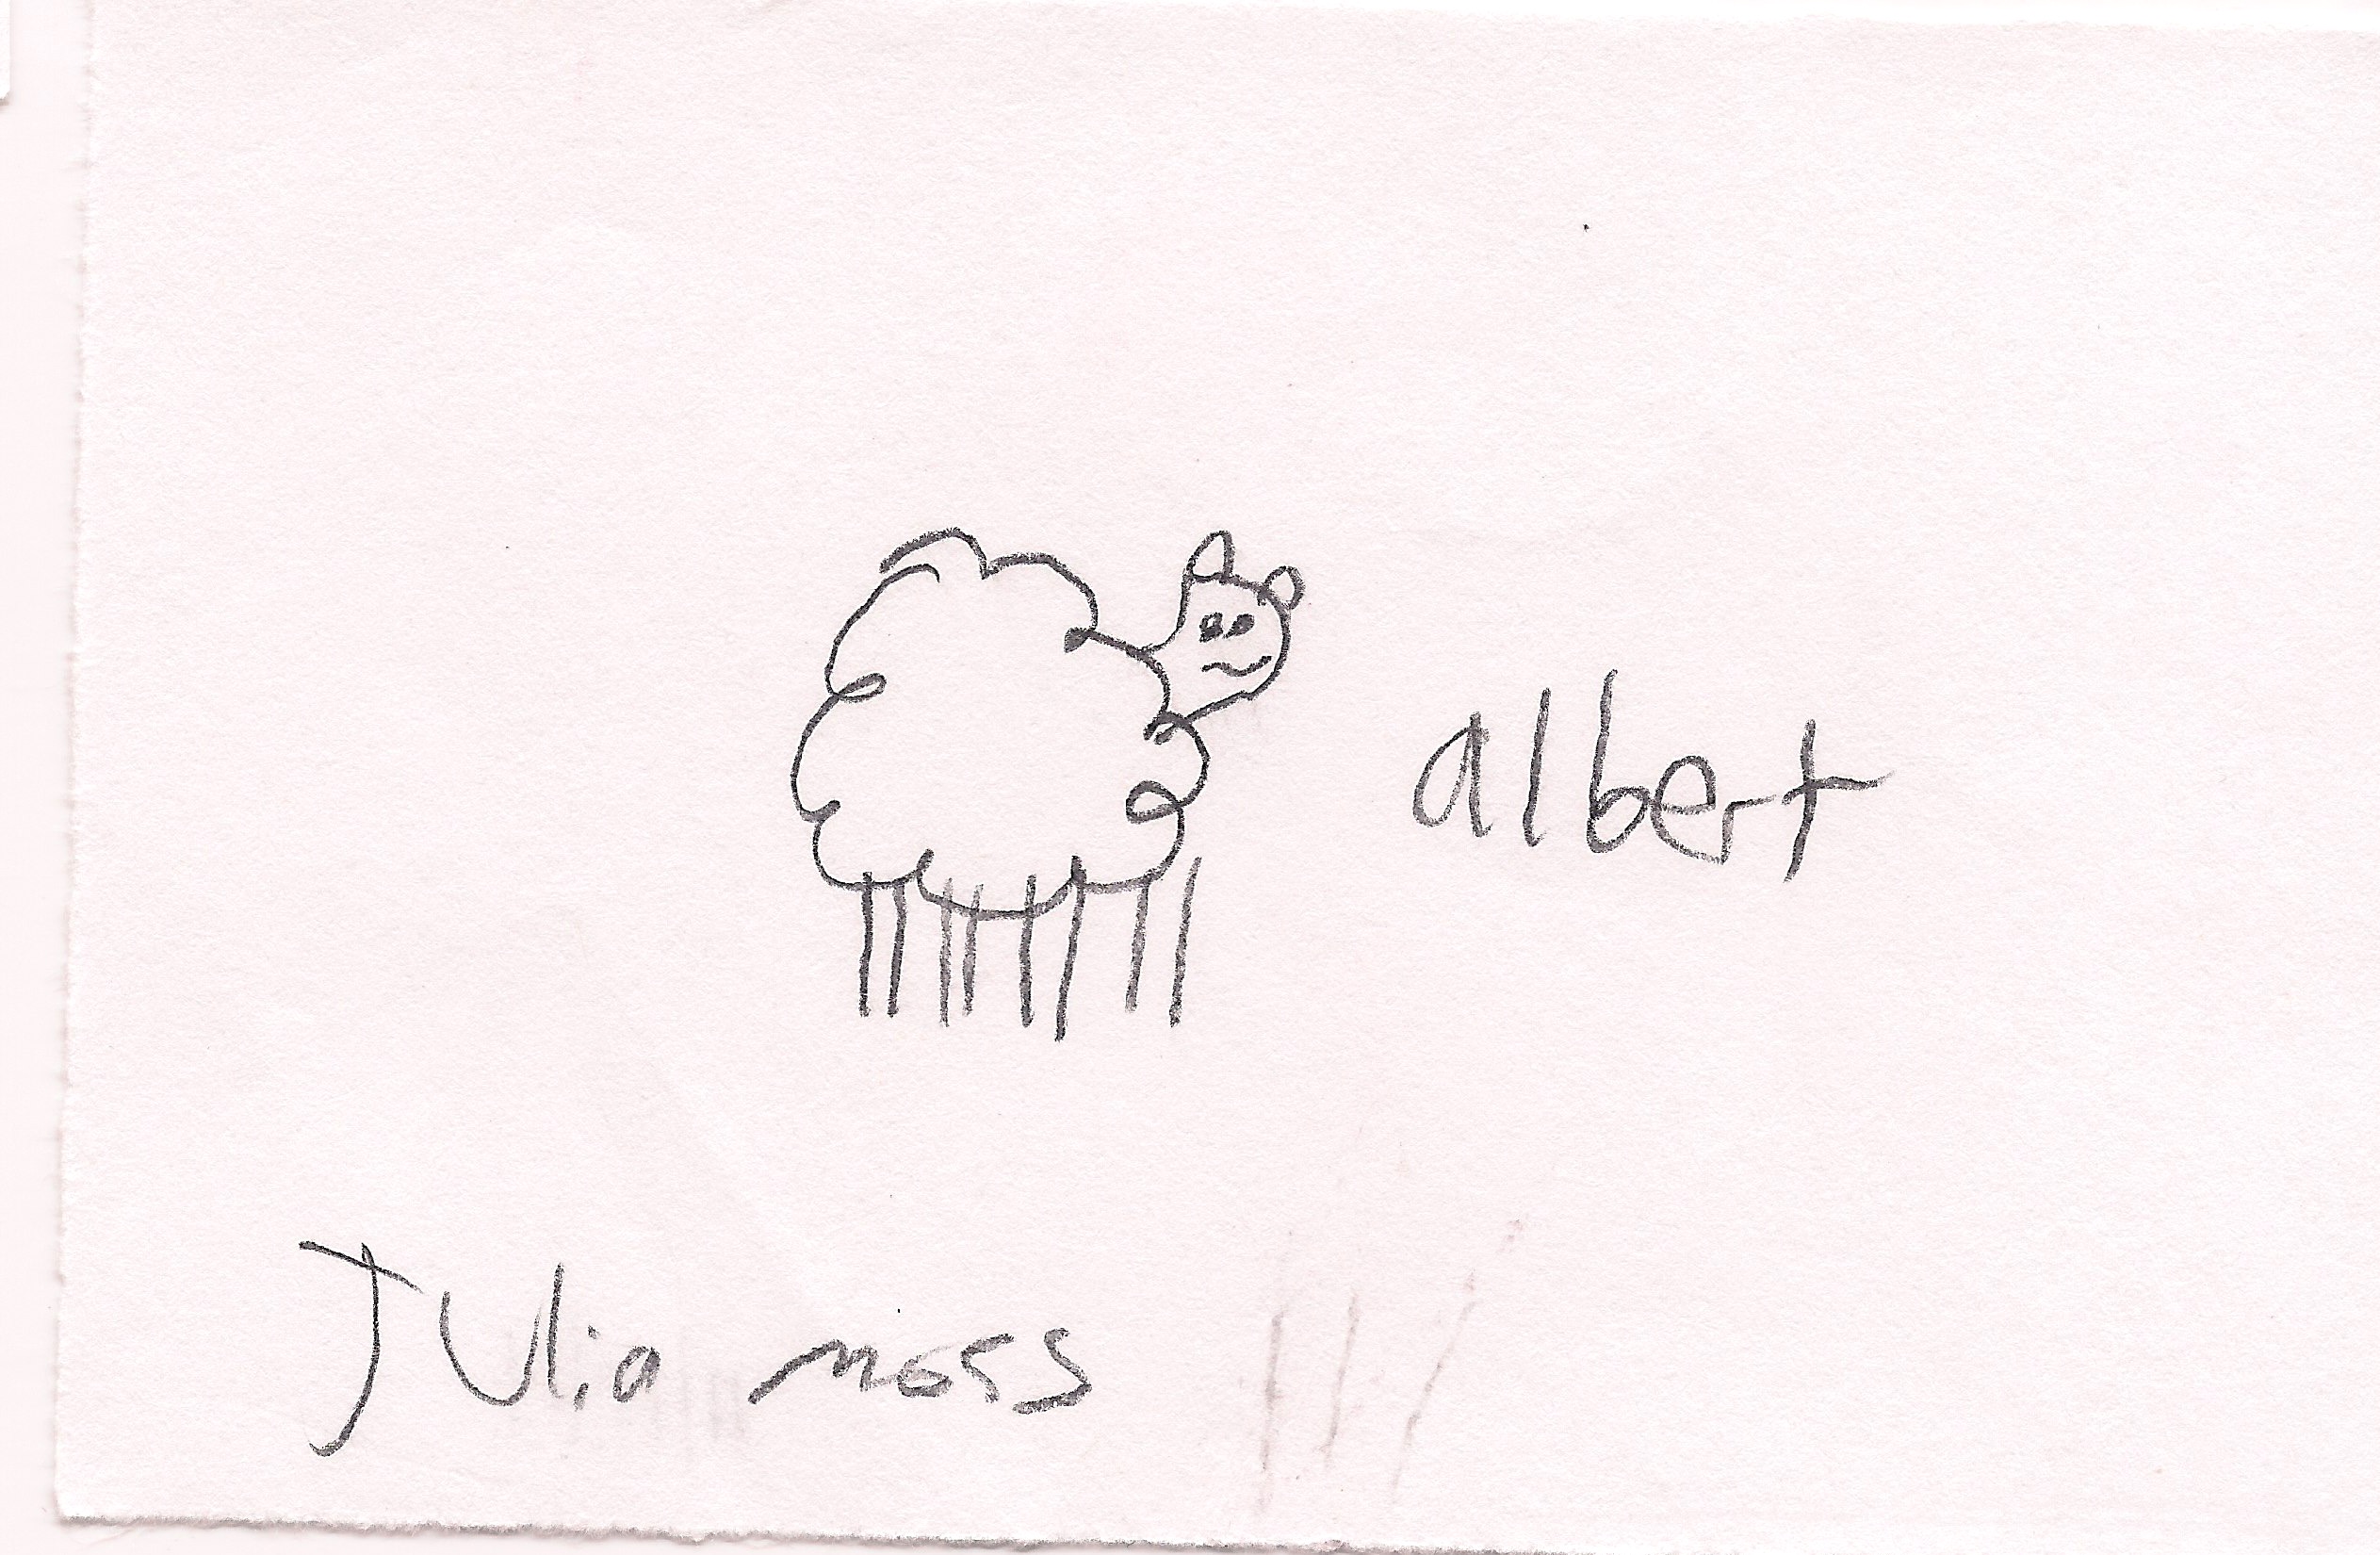 albert
Julia moss